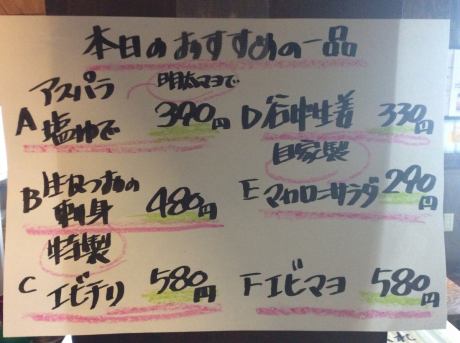 本日のおすすめの一品
アスパラ 明太マヨで
A 塩ゆで 390円
B 生食つぶの刺身 480円
特製
C エビチリ 580円
D 谷中生姜 330円
自家製
E マカロニサラダ 290円
F エビマヨ 580円